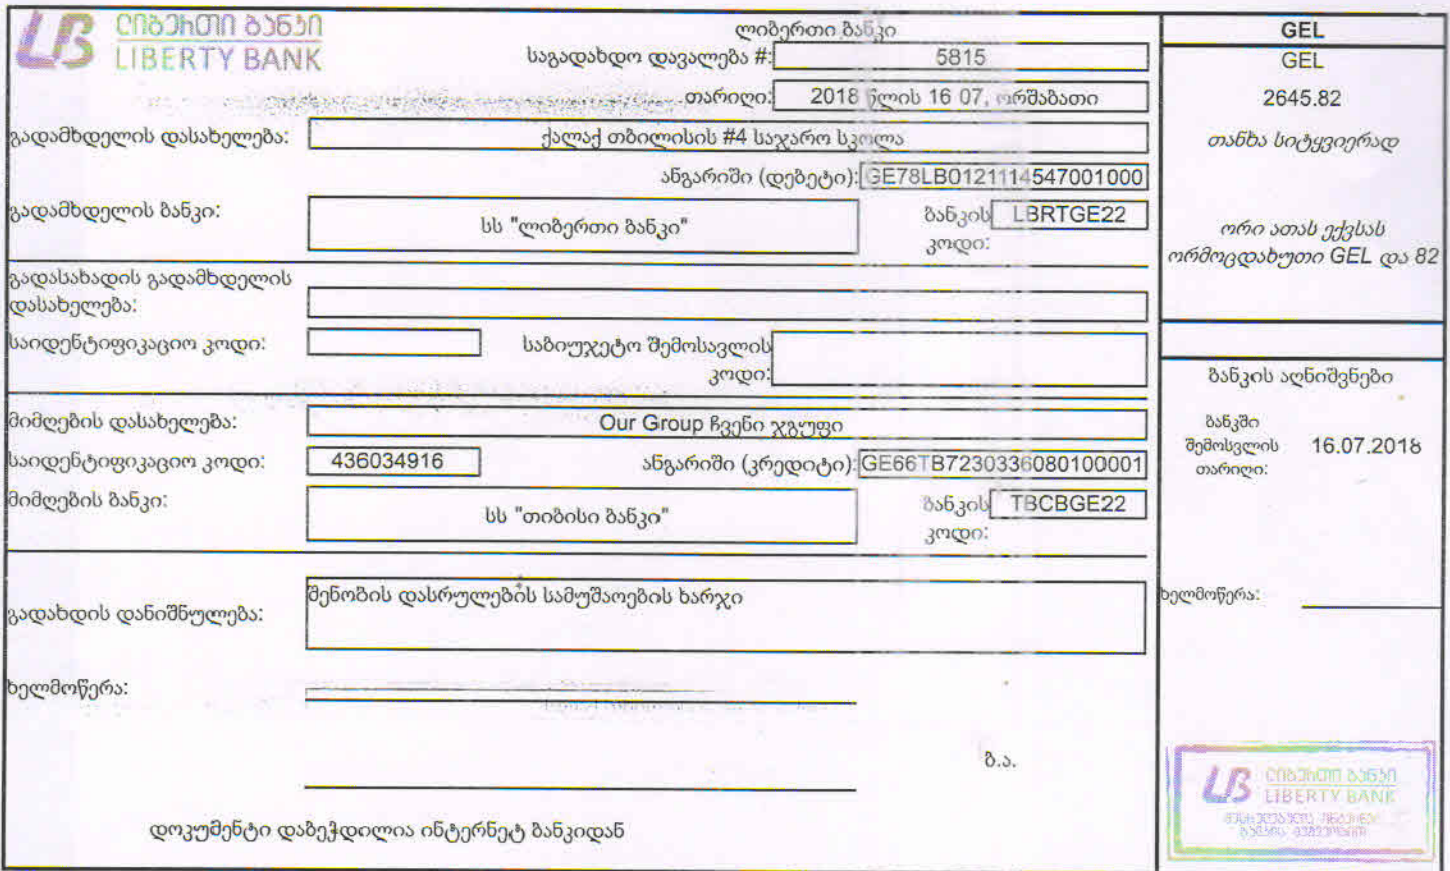 ლიბერთი ბანკი
LIBERTY BANK
ლიბერთი ბანკი
საგადახდო დავალება #: 5815
თარიღი: 2018 წლის 16 07, ორშაბათი
გადამხდელის დასახელება: ქალაქ თბილისის #4 საჯარო სკოლა
ანგარიში (დებეტი): GE78LB0121114547001000
გადამხდელის ბანკი: სს "ლიბერთი ბანკი" ბანკის კოდი: LBRTGE22
გადასახადის გადამხდელის
დასახელება:
საიდენტიფიკაციო კოდი: საბიუჯეტო შემოსავლის
კოდი:
მიმღების დასახელება: Our Group ჩვენი ჯგუფი
საიდენტიფიკაციო კოდი: 436034916 ანგარიში (კრედიტი): GE66TB7230336080100001
მიმღების ბანკი: სს "თიბისი ბანკი" ბანკის კოდი: TBCBGE22
გადახდის დანიშნულება: შენობის დასრულების სამუშაოების ხარჯი
ხელმოწერა:
ბ.ა.
დოკუმენტი დაბეჭდილია ინტერნეტ ბანკიდან
GEL
GEL
2645.82
თანხა სიტყვიერად
ორი ათას ექვსას
ორმოცდახუთი GEL და 82
ბანკის აღნიშვნები
ბანკში
შემოსვლის 16.07.2018
თარიღი:
ხელმოწერა:
LB ლიბერთი ბანკი
LIBERTY BANK
შესრულებულია ინტერნეტ
ბანკის მეშვეობით